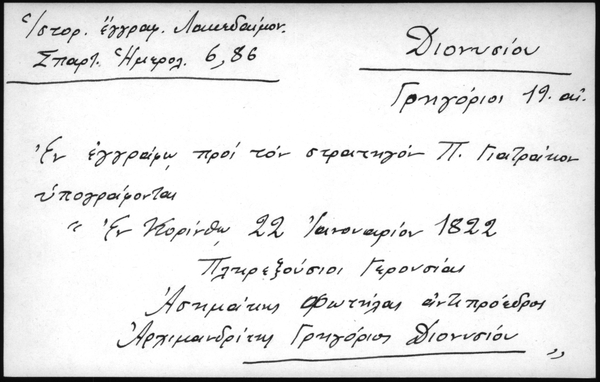 Ἱστορ. ἔγγραφ. Λακεδαίμον.
Σπαρτ. Ἡμερολ. 6, 86
Διονυσίου
Γρηγόριος 19. αἰ.
Ἐν ἐγγράφῳ πρὸς τὸν στρατηγὸν Π. Γιατράκον
ὑπογράφονται
" Ἐν Κορίνθῳ 22 Ἰανουαρίου 1822
Πληρεξούσιοι Γερουσίας
Ἀσημάκης Φωτήλας ἀντιπρόεδρος
Ἀρχιμανδρίτης Γρηγόριος Διονυσίου "